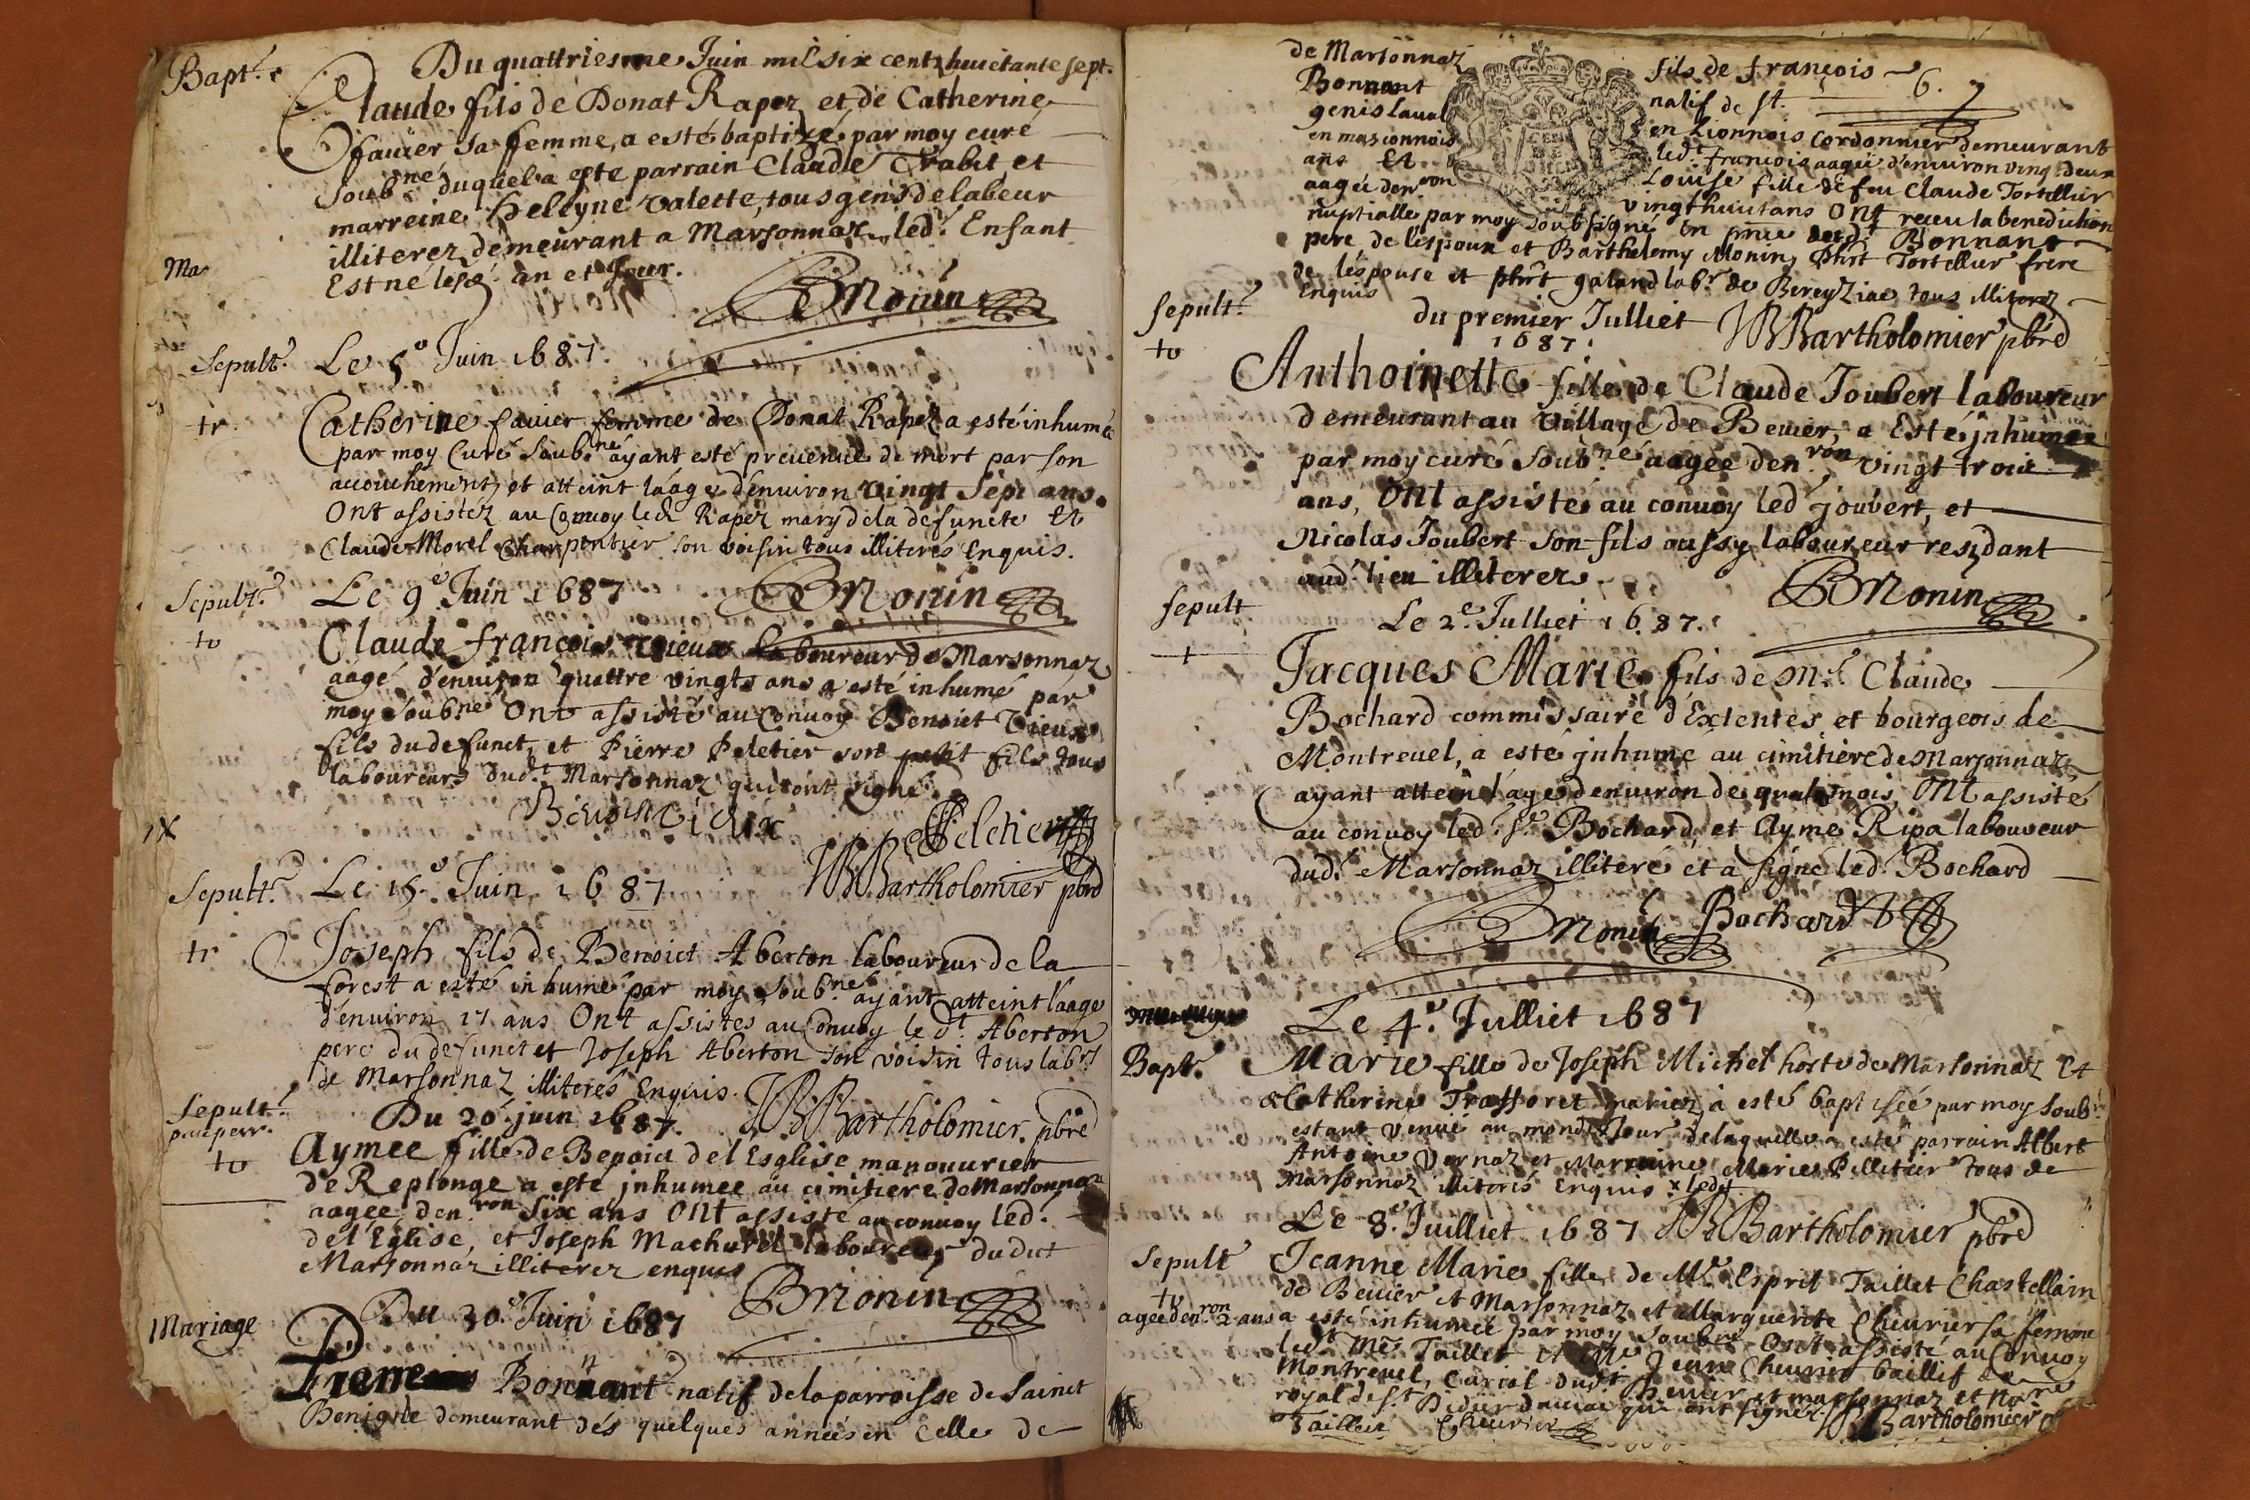 Bapt.e
Du quattriesme Juin mil six cent huictante sept.
Claude fils de Donat Rapez et de Catherine
favier sa femme, a esté baptizé par moy curé
soub.né duquel a este parrain Claude Trabit et
marreine Heleyne valette, tous gens de labeur
illiterez demeurant a Marsonnaz led.t Enfant
Est né les. an et Jour.
BMonin
Ma
Sepult.e Le 5e Juin 1687.
tr.
Catherine favier femme de Donat Rapez a esté inhumé
par moy Curé Soub.né ayant esté prevenue de mort par son
accouchement, et atteint láage d'environ vingt Sept ans.
Ont assistéz au Convoy led. Rapez mary de la defuncte Et
Claude Morel Charpentier son voisin tous illiterés Enquis.
BMonin
Sepult.e Le 9e Juin 1687
to
Claude françois vieux laboureur de Marsonnaz
aagé d'environ quattre vingts ans a esté inhumé par
moy Soub.né Ont assisté au Convoy Benoict Vieux
fils du defunct, et Pierre Peletier son petit fils tous
laboureurs dud.t Marsonnaz qui ont signé.
Benoist Vieux
Peletier
JBBartholomier pbré
IX
Sepult.e Le 15e Juin 1687
tr
Joseph fils de Benoict Aberton laboureur de la
forest a esté inhumé par moy soub.né ayant atteint l'aage
d'environ 17 ans Ont assistes au Convoy le d.t Aberton
pere du defunct et Joseph Aberton son voisin tous lab.rs
de Marsonnaz illiterés Enquis.
JBBartholomier pbré
Sepult.e
pauper.
to
Du 20e juin 1687.
Aymee fille de Benoict de l'Esglise manouvrier
de Replonge a esté inhumee au cimitiere de Marsonnaz
aagée den.ron six ans Ont assisté au convoy led.t
de l'Eglise, et Joseph Mathurel laboureur dudict
Marsonnaz illiterez enquis
BMonin
Mariage
Du 30e Juin 1687
Bonnant natif de la parroisse de Sainct
Benigne demeurant dés quelques années en Celle de
de Marsonnaz fils de françois 6. 7
Bonnant natif de St.
genis Laval en Lionnois Cordonnier demeurant
en masconnois led.t françois aagée d'environ vingt deux
ans Et Louise fille de feu Claude Tortellier
aagée den.ron vingt huict ans Ont receu la benediction
nuptialle par moy soubsigné En p.nce dud. Bonnant
pere de l'espoux et Barthelemy Monin, Tortellier frere
de léspouse et galand lab.r de Bereyziac tous illiterez
Enquis
JBBartholomier pbré
Sepult.e
to
du premier Julliet
1687.
Anthoinette fille de Claude Joubert laboureur
demeurant au village de Bevier, a Esté inhumee
par moy curé soub.né aagée den.ron vingt trois
ans, Ont assisté au convoy led.t joubert, et
Nicolas Joubert son fils aussy laboureur residant
aud.t lieu illiterez.
BMonin
Sepult
Le 2e Julliet 1687.
Jacques Marie fils de M.e Claude
Bochard commissaire d'Extentes et bourgeois de
Montrevel, a esté inhumé au cimitiere de Marsonnaz
ayant attein l'age denviron de quatr mois Ont assisté
au convoy led.t S.r Bochard, et Ayme Ripa laboureur
dud.t Marsonnaz illiteré et a signé led.t Bochard
BMonin Bochard
Le 4e Julliet 1687
Bapt.e
Marie fille de Joseph Michel hoste de Marsonnaz Et
Catherine Trafforet mariez, a esté baptisée par moy soub.né
estant venue au monde x Jour de laquelle a esté parrain Albert
Antoine Vernaz et Marraine Marie Pilletier tous de
Marsonnaz illiterés Enquis x ledit
JBBartholomier pbré
Le 8e Juilliet 1687
Sepult
to
Jeanne Marie fille de M.e Esprit Taillet Chastellain
de Bevier et Marsonnaz et Marguerite Chevrier sa femme
agée den.ron 2 ans a esté inhumée par moy soub.né Ont assisté au Convoy
led.t Me Taillet et Me Jean Chevrier baillif de
Montrevel, Curial dud.t Bevier et marsonnaz et no.re
royal de S.t Didier daussiac qui ont signez.
Taillet Chevrier JBBartholomier